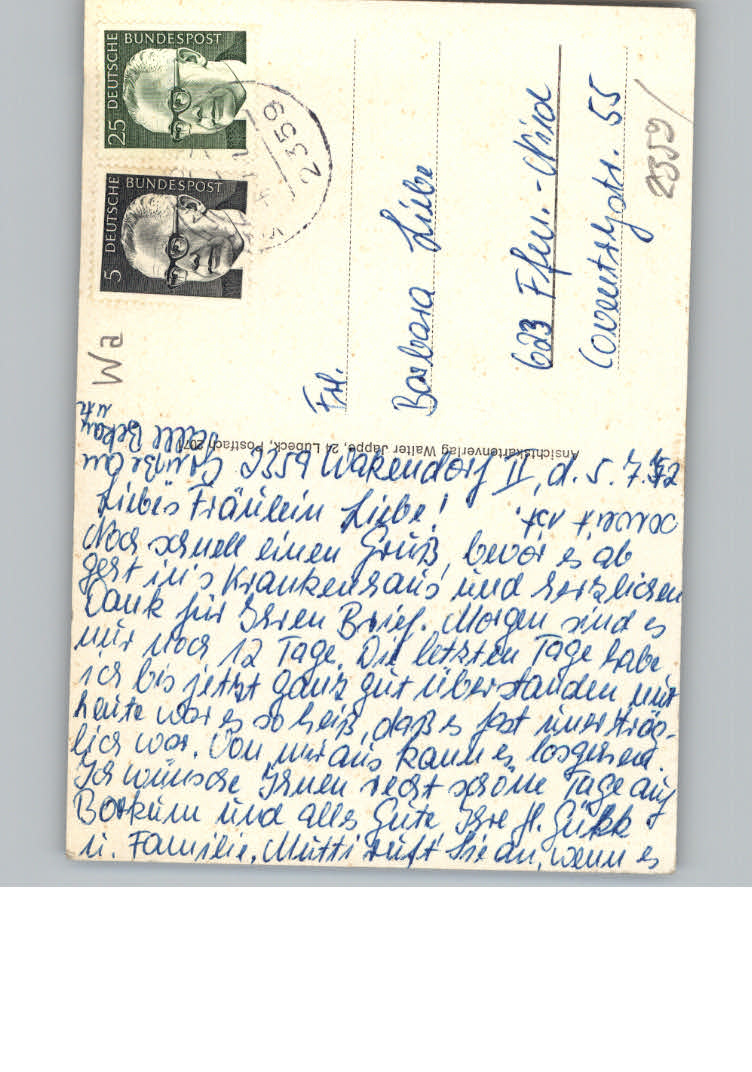 DEUTSCHE BUNDESPOST
25
DEUTSCHE BUNDESPOST
5
2359
Wa
2359/
Frl.
Barbara Liebe
623 Ffm.-Nied
Coventrystr. 55
Ansichtskartenverlag Walter Jappe, 24 Lübeck, Postfach 207
2359 Wakendorf II, d. 5.7.72
Liebes Fräulein Liebe!
Noch schnell einen Gruß, bevor es ab
geht in's Krankenhaus und herzlichen
Dank für Ihren Brief. Morgen sind es
nur noch 12 Tage. Die letzten Tage habe
ich bis jetzt ganz gut überstanden nur
heute war es so heiß, daß es fast unerträg-
lich war. Von mir aus kann es losgehen.
Ich wünsche Ihnen recht schöne Tage auf
Borkum und alles Gute Ihre H. Gükk
u. Familie. Mutti ruft Sie an, wenn es
soweit ist.